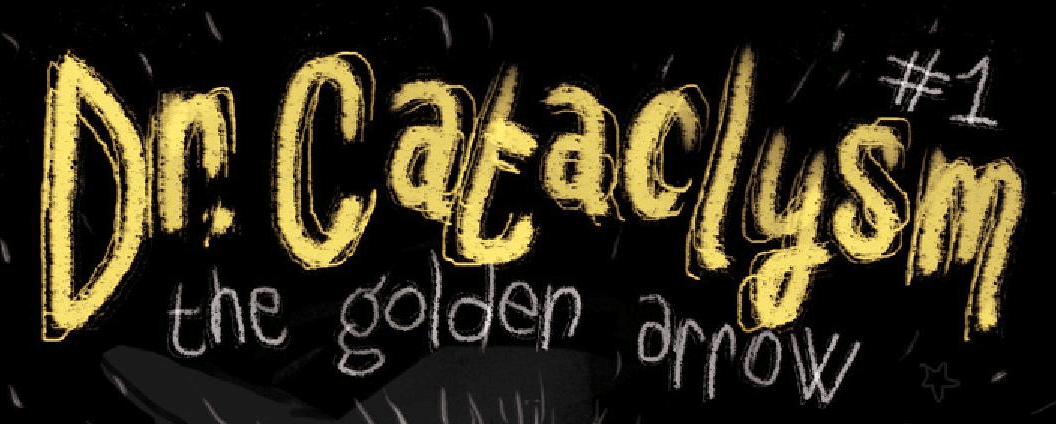 #1
Dr. Cataclysm
the golden arrow